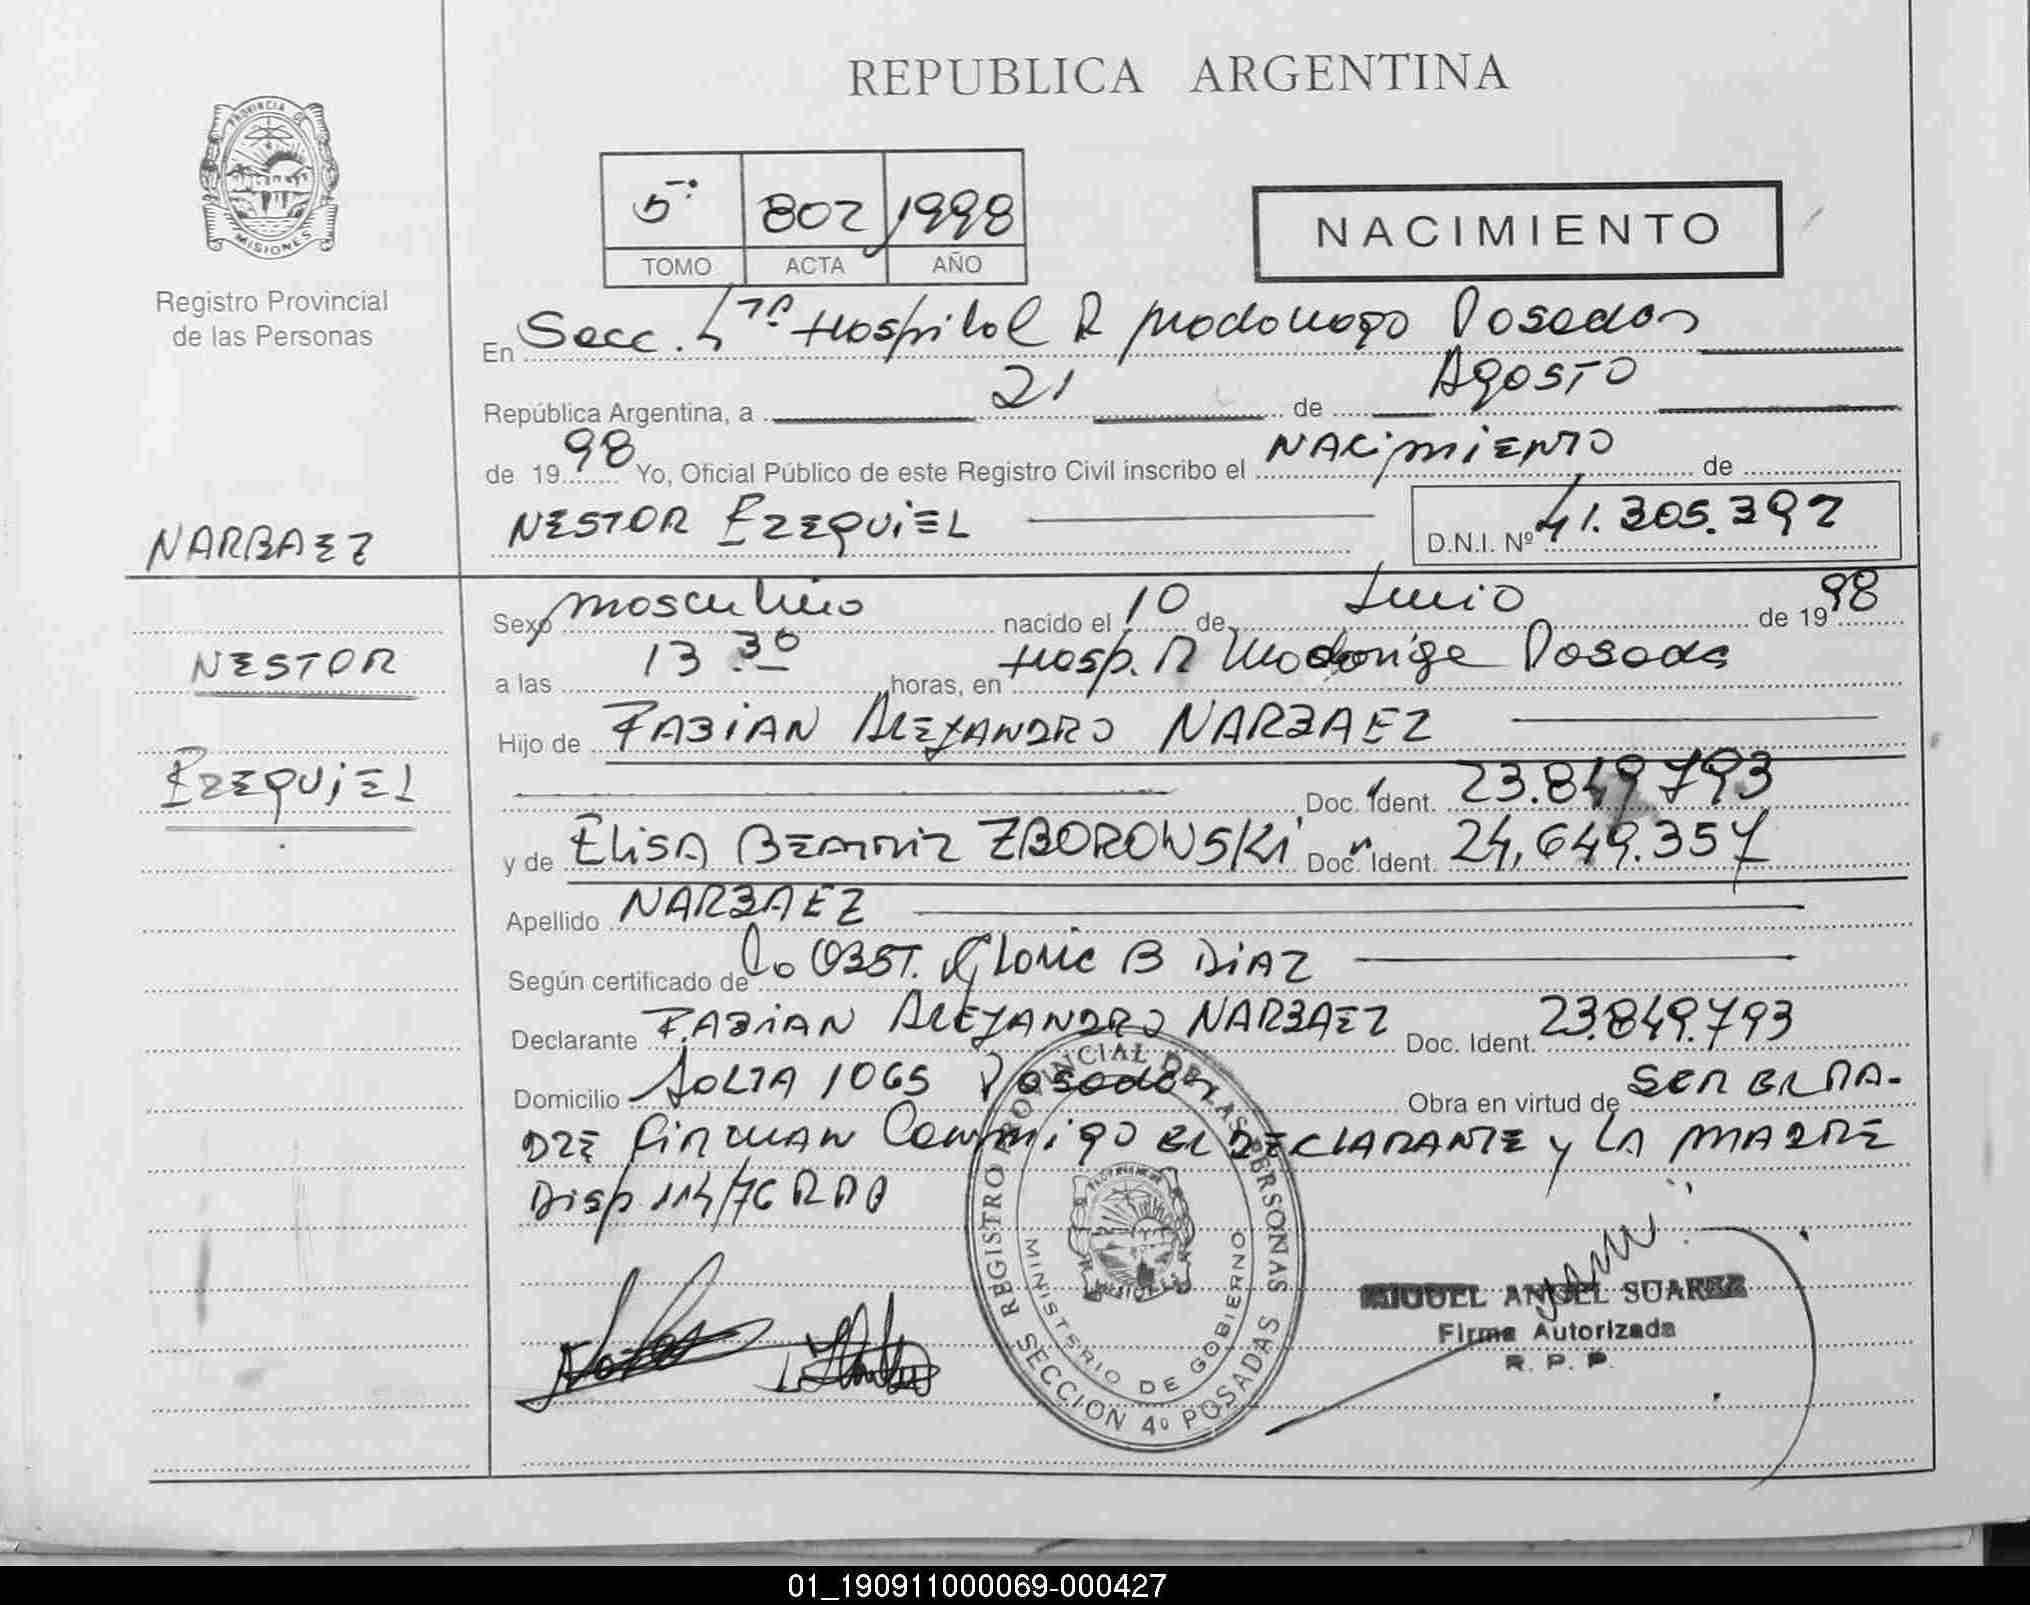 REPUBLICA ARGENTINA
PROVINCIA DE
MISIONES
Registro Provincial
de las Personas
5
802
1998
TOMO
ACTA
AÑO
NACIMIENTO
En Secc. 4ta Hospital R Madariaga Posadas
República Argentina, a 21 de AGOSTO
de 1998 Yo, Oficial Público de este Registro Civil inscribo el NACIMIENTO de
NARBAEZ
NESTOR EZEQUIEL D.N.I. Nº 41.305.392
Sexo masculino nacido el 10 de Junio de 1998
NESTOR
a las 13.30 horas, en Hosp. R Madariaga Posadas
Hijo de FABIAN ALEJANDRO NARBAEZ
EZEQUIEL
Doc. Ident. 23.849.793
y de ELISA BEATRIZ ZBOROWSKI Doc. Ident. 24.649.357
Apellido NARBAEZ
Según certificado de La OBST. Gloria B DIAZ
Declarante FABIAN ALEJANDRO NARBAEZ Doc. Ident. 23.849.793
Domicilio SALTA 1065 Posadas Obra en virtud de SER EL PA-
DRE FIRMAN Conmigo EL DECLARANTE y LA MADRE
Disp 114/76 RPP
REGISTRO PROVINCIAL DE LAS PERSONAS
MINISTERIO DE GOBIERNO
SECCION 4º POSADAS
MIGUEL ANGEL SUAREZ
Firma Autorizada
R. P. P.
01_190911000069-000427